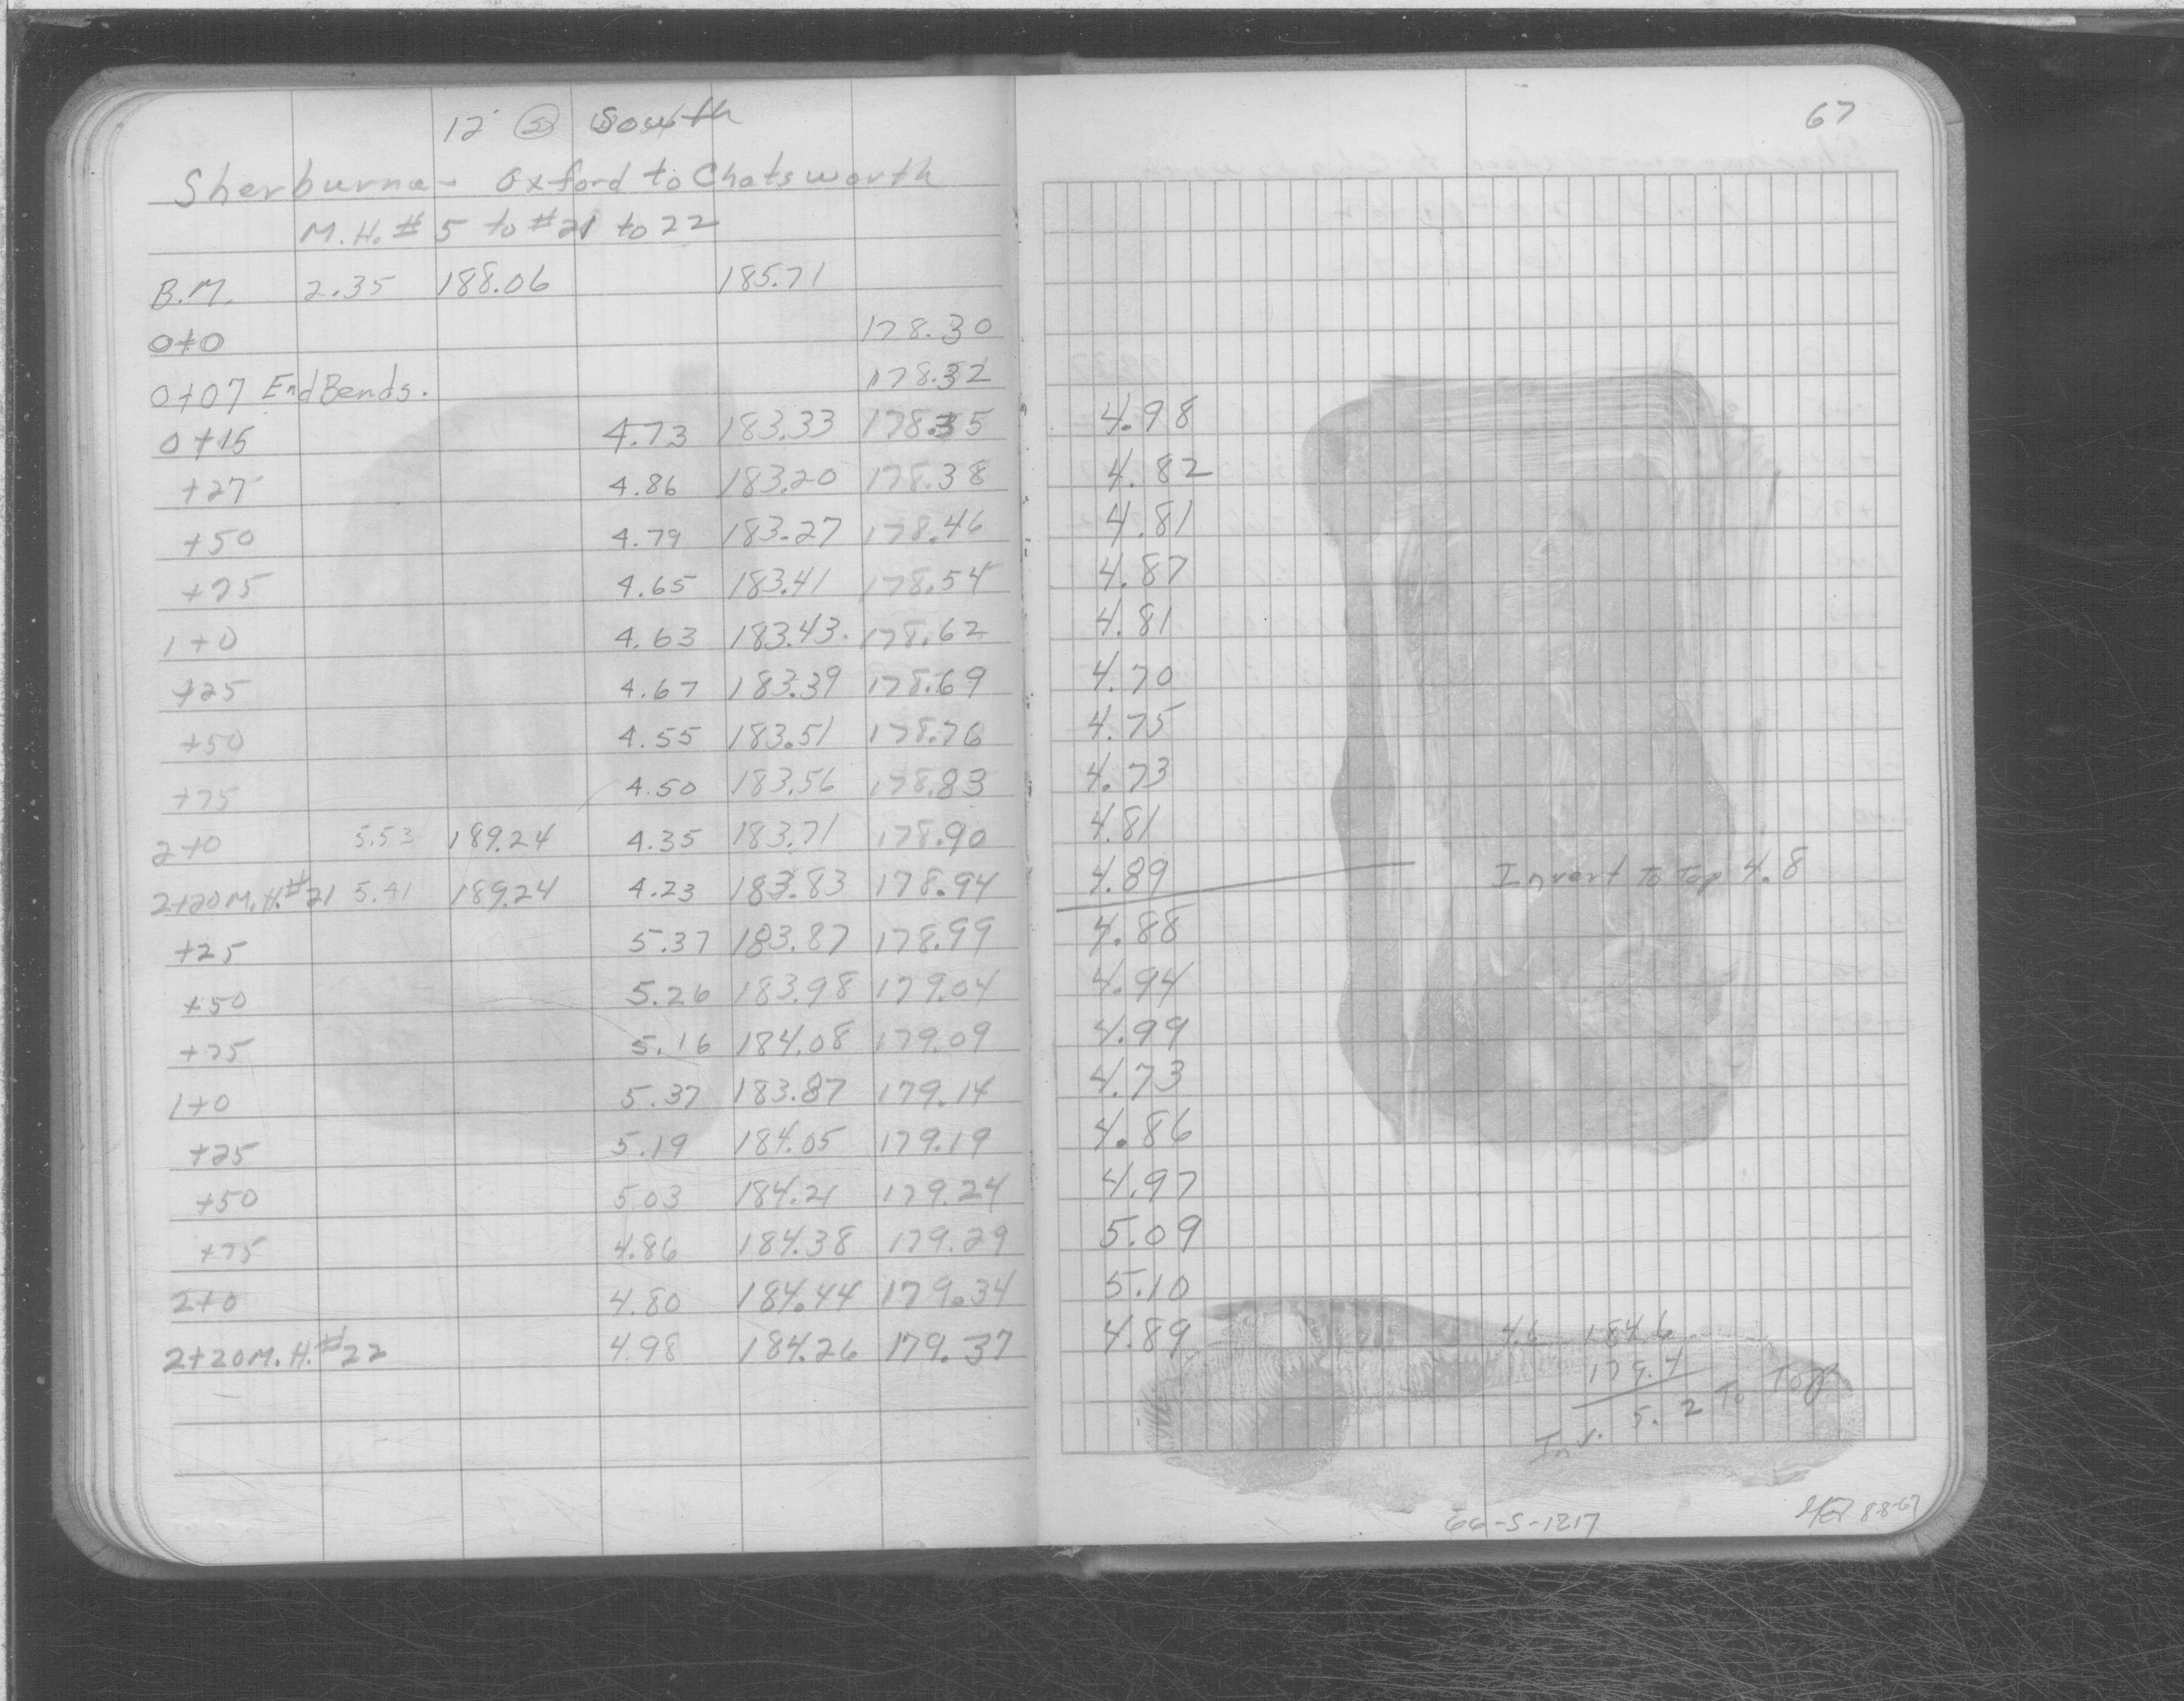 12" Ⓢ South
67
Sherburne - Oxford to Chatsworth
M.H. # 5 to #21 to 22
B.M. 2.35 188.06 185.71
0+0 178.30
0+07 End Bends. 178.32
0+15 4.73 183.33 178.35 4.98
+27 4.86 183.20 178.38 4.82
+50 4.79 183.27 178.46 4.81
+75 4.65 183.41 178.54 4.87
1+0 4.63 183.43 178.62 4.81
+25 4.67 183.39 178.69 4.70
+50 4.55 183.51 178.76 4.75
+75 4.50 183.56 178.83 4.73
2+0 5.53 189.24 4.35 183.71 178.90 4.81
2+20 M.H.#21 5.41 189.24 4.23 183.83 178.94 4.89 Invert to Top 4.8
+25 5.37 183.87 178.99 4.88
+50 5.26 183.98 179.04 4.94
+75 5.16 184.08 179.09 4.99
1+0 5.37 183.87 179.14 4.73
+25 5.19 184.05 179.19 4.86
+50 5.03 184.21 179.24 4.97
+75 4.86 184.38 179.29 5.09
2+0 4.80 184.44 179.34 5.10
2+20 M.H.#22 4.98 184.26 179.37 4.89 4.6 184.6
179.4
Inv. 5.2 To Top
66-S-1217
8-8-67